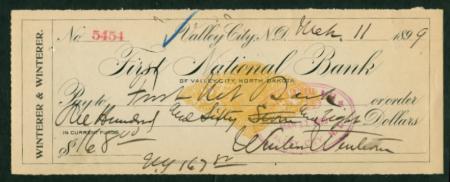 No 5454 Valley City, N.D. Mch. 11 1899
First National Bank
OF VALLEY CITY, NORTH DAKOTA
Pay to First Nat Bank or order
One Hundred and Sixty Eight Dollars
IN CURRENT FUNDS.
$168
Winterer & Winterer
NY 167
WINTERER & WINTERER.